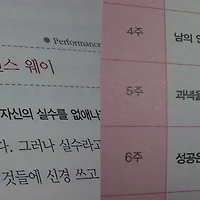 Performance
스 웨이
자신의 실수를 없애
다. 그러나 실수라고
것들에 신경 쓰고
4주
남의
5주
과녁을
6주
성공은